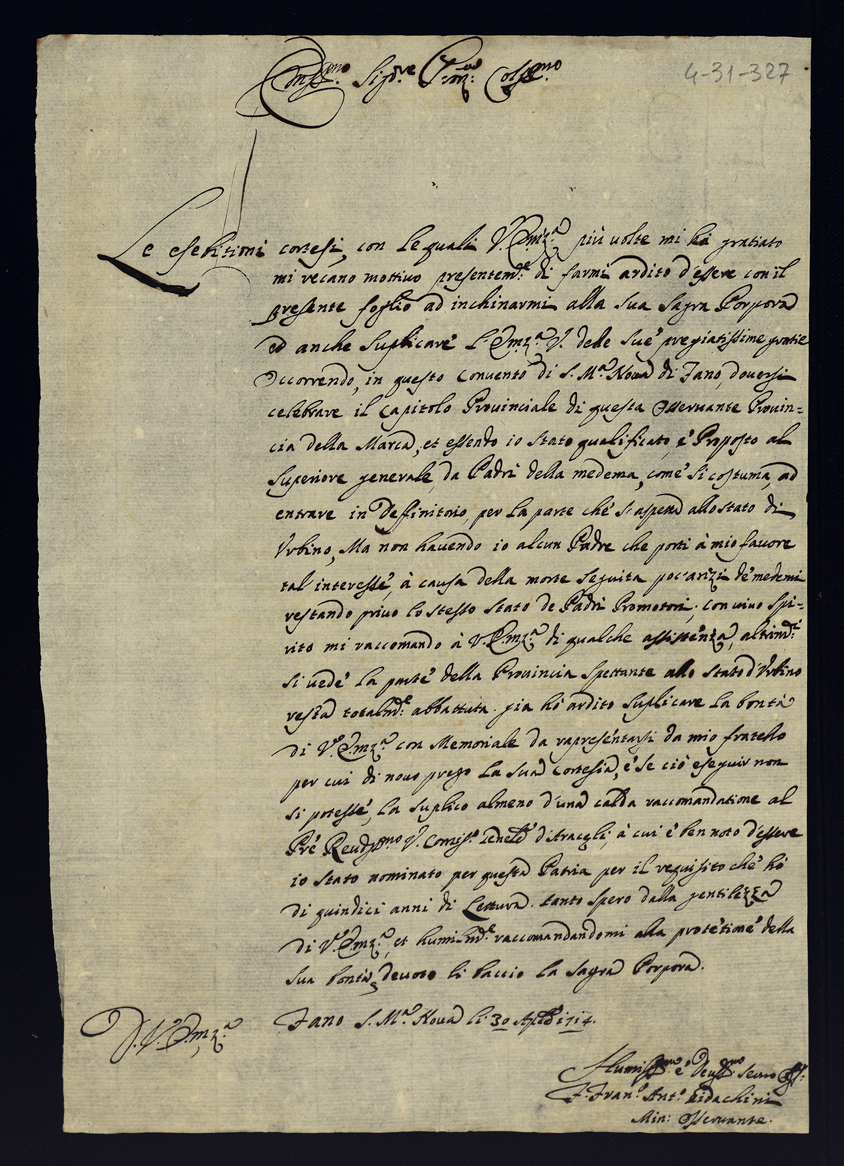 4-31-327
Sig.re
Le esebitioni cortesi, con le quali V. Em.za più volte mi hà gratiato
mi recano mottivo presentem.te di farmi ardito d'essere con il
presente foglio ad inchinarmi alla sua Sagra Porpora
ed anche suplicare l'Em.za V. delle sue pregiatissime gratie
Occorrendo, in questo Convento di S. M.a Nova di Fano, doversi
celebrare il Capitolo Provinciale di questa Osservante Provin=
cia della Marca, et essendo io stato qualificato, e Proposto al
Superiore generale, da Padri della medema, come si costuma, ad
entrare in Deffinitorio, per la parte che s'aspetta allo stato di
Urbino, Ma non havendo io alcun Padre che porti à mio favore
tal interesse, à causa della morte seguita de medemi
restando privo lo stesso stato de Padri Promotori; con vivo spi=
rito mi raccomando à V. Em.za di qualche assistenza, altrim.te
si vede la parte della Provincia spettante allo stato d'Urbino
resta totalm.te abbattuta. già hò ardito suplicare la bontà
di V. Em.za con Memoriale da rapresentarsi da mio fratello
per cui di novo prego la sua cortesia, e se ciò eseguir non
si potesse, la suplico almeno d'una calda raccomandatione al
P're Reud.mo V. Comiss. d'Araceli, à cui è ben noto d'essere
io stato nominato per questa Patria per il requisito che hò
di quindici anni di Lettura. tanto spero dalla gentilezza
di V. Em.za, et humilm.te raccomandandomi alla protetione della
sua bontà, devoto li baccio la sagra Porpora.
Fano S. M.a Nova li 30 Aple 1714.
D. V. Em.za
Humiss.mo e Deu.mo Seruo
F. Fran.o Ant.o
Min: Osservante.